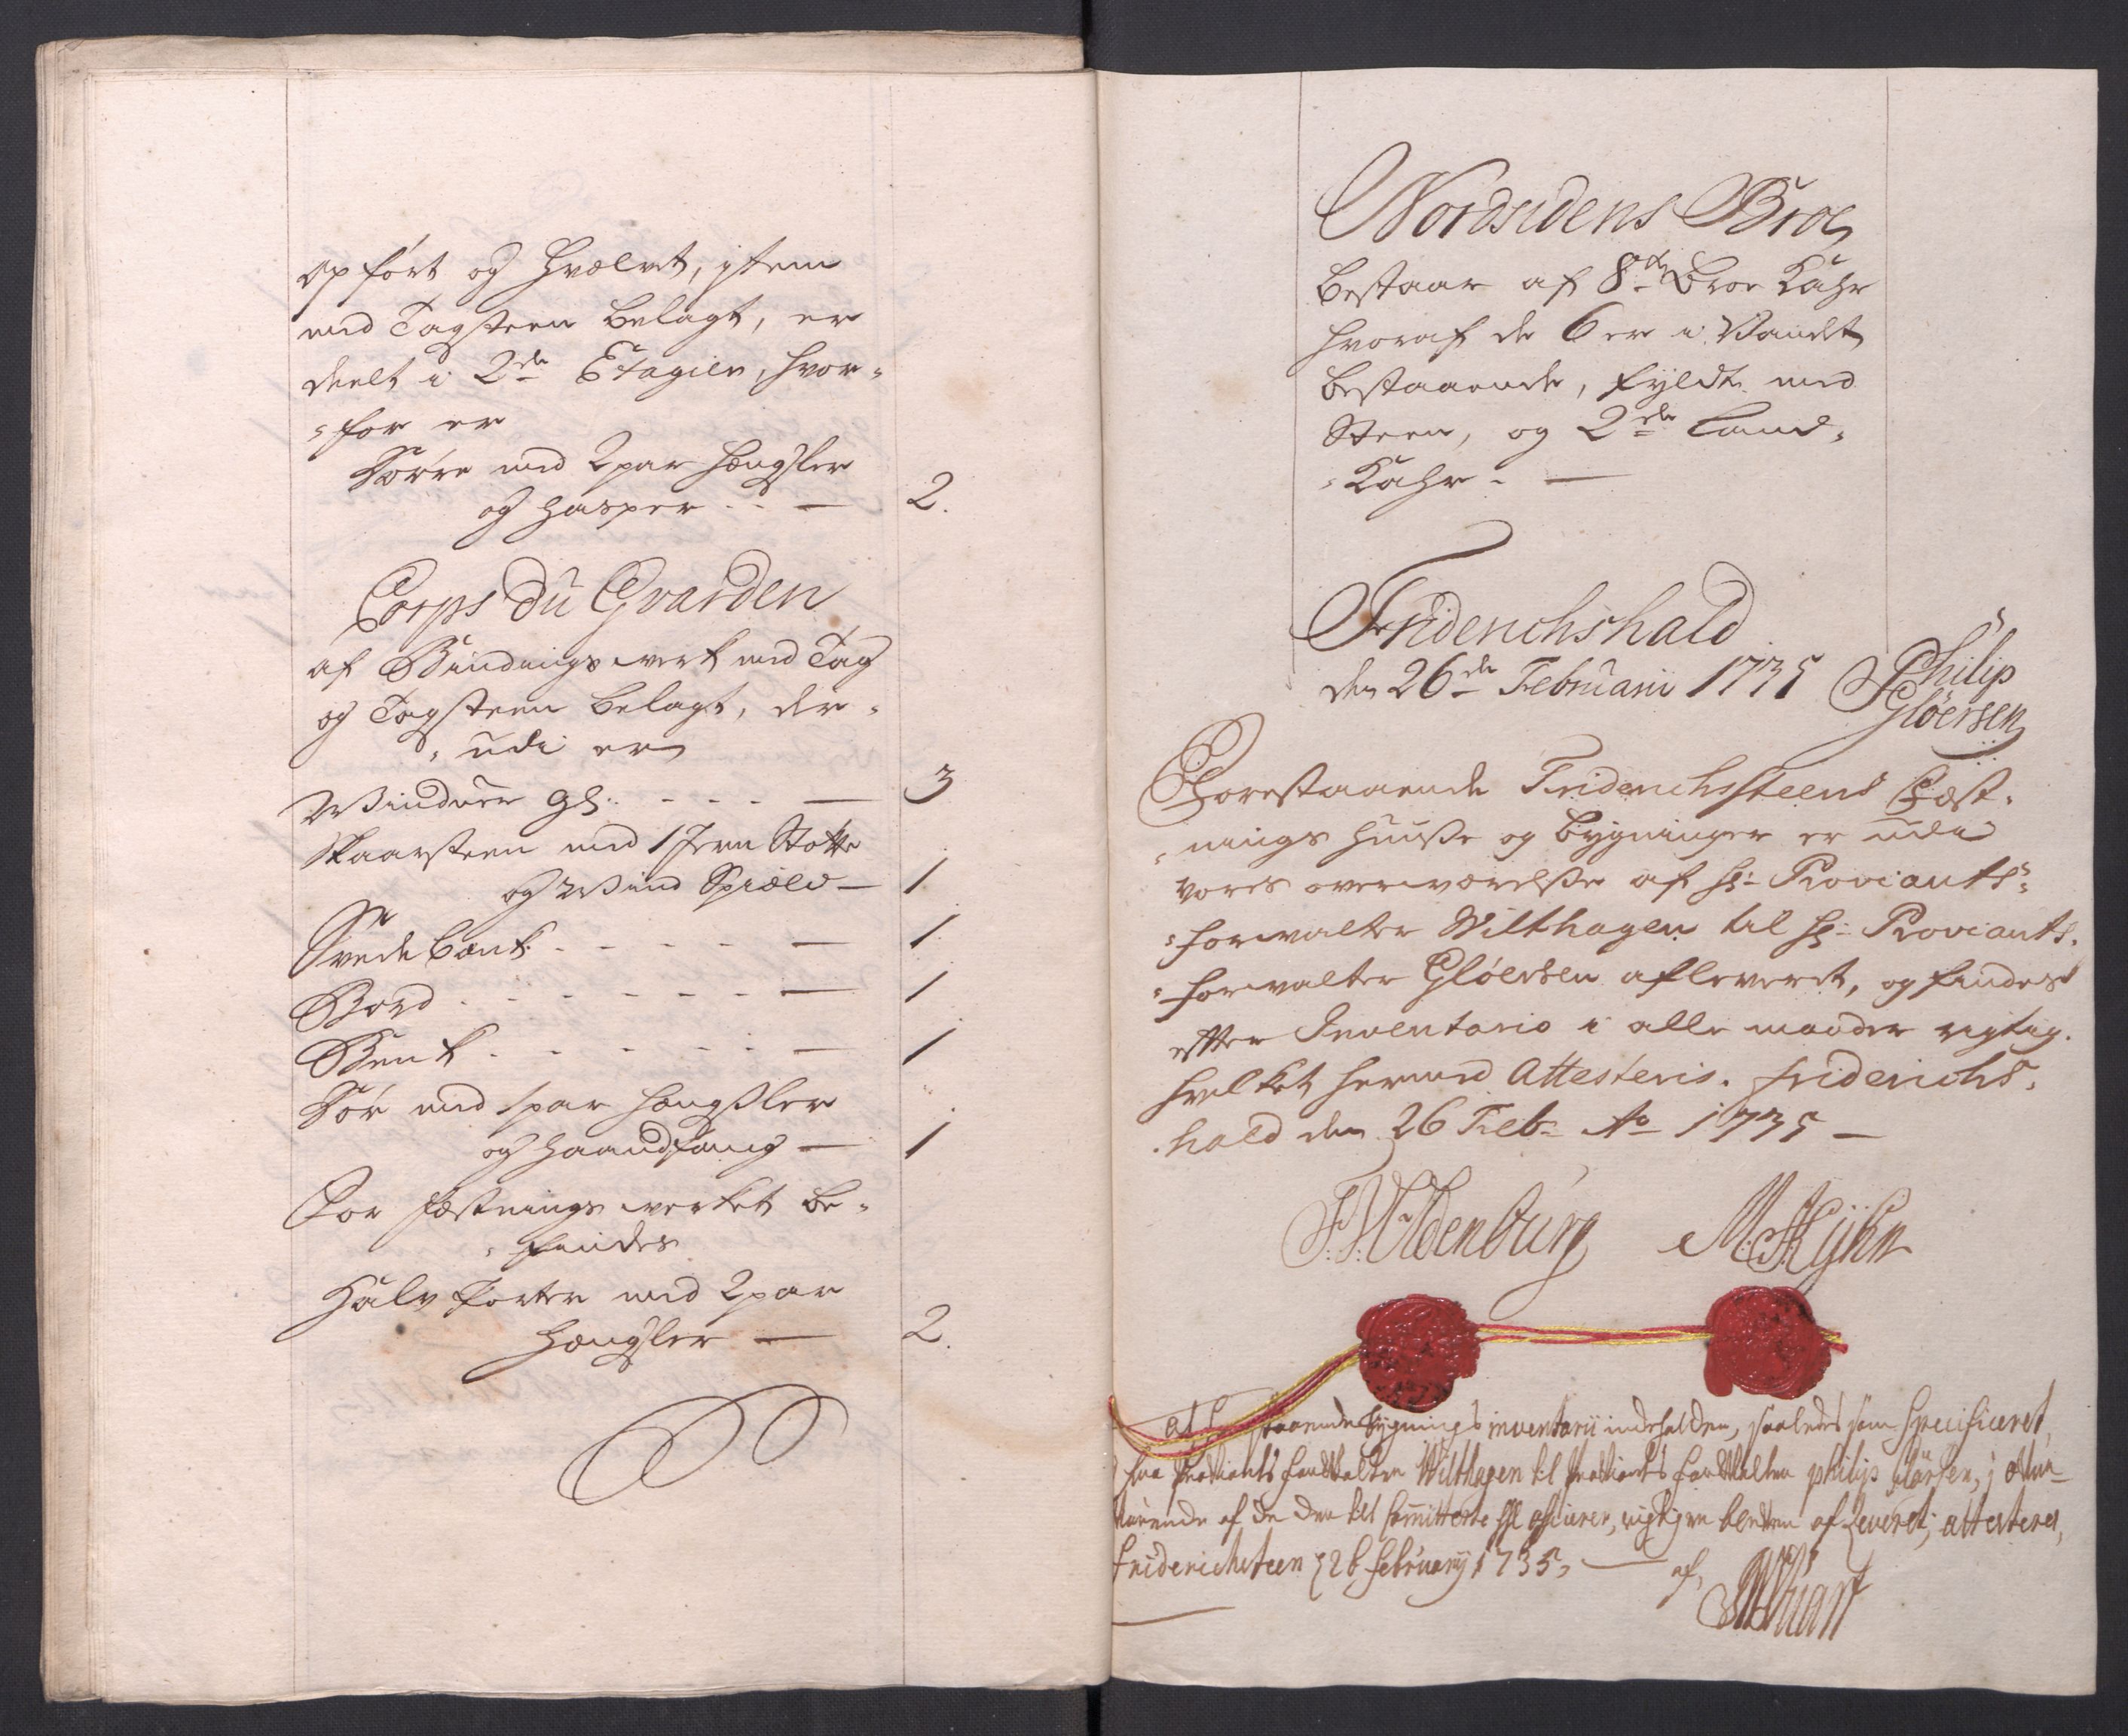 opført og Hvælvet, jtem
med Tagsteen belagt, er
deelt i 2de Etagier, hvor-
-for er
Dørre med 2 par Hængsler
og Hasper - - — 2.
Corps du Gvarden
af Bindingsverk med Tag
og Tagsteen belagt, der-
-udi er
Winduer gl: - - - — 3
Skaarsteen med 1 Jern Støtte
og Wind Spiæld — 1
Bænk - - - - - — 1
Bord - - - - - - — 1
Benk - - - - - - — 1
Dør med 1 par Hængsler
og Haandfang — 1
For Fæstnings verket be-
-findes
Halv Porter med 2 par
Hængsler — 2.
Nordsidens Broe
bestaar af 8te Broe Kahr
hvoraf de 6 er i Vandet
bestaaende, fyldte med
Steen, og 2de Land-
-Kahr. —
Friderichshald
den 26de Februarii 1735 Philip
Gløersen
Forestaaende Friderichssteens Fæst-
-nings Huuse og bygninger er udi
vores overværelse af Hr: Proviants-
-forvalter Wilthagen til Hr: Proviants-
-forvalter Gløersen afleveret, og findes
efter Inventario i alle maader rigtig.
hvilket hermed Attesteris. Friderichs-
-hald den 26 Feb: Ao 1735 —
at staaende bygnings inventarii indeholden, saaledes som Specificeret,
fra Proviants forvalter Wilthagen til Proviants forvalter philip Glørsen, j ofver-
værende af de der til Committerte Hl officerer, rigtig er bleven af Leveret; attesteres,
friderichsteen d 26 februarij 1735, — af,